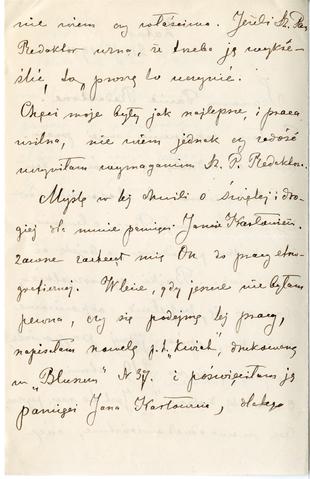 nie wiem czy właściwa. Jeżeli Sz. Pan
Redaktor uzna, że trzeba ją wykre-
ślić, to proszę to uczynić.
Chęci moje były jak najlepsze, i praca
usilna, nie wiem jednak czy zadość
uczyniłam wymaganiom Sz. P. Redaktora.
Myślę w tej chwili o świętej i dro-
giej dla mnie pamięci Janie Karłowiczu.
zawsze zachęcał mię On do pracy etno-
graficznej. W lecie, gdy jeszcze nie byłam
pewna, czy się podejmę tej pracy,
napisałam nowelę p. t. „Kwiat", drukowaną
w „Bluszczu" N 37. i poświęciłam ją
pamięci Jana Karłowicza, dlatego